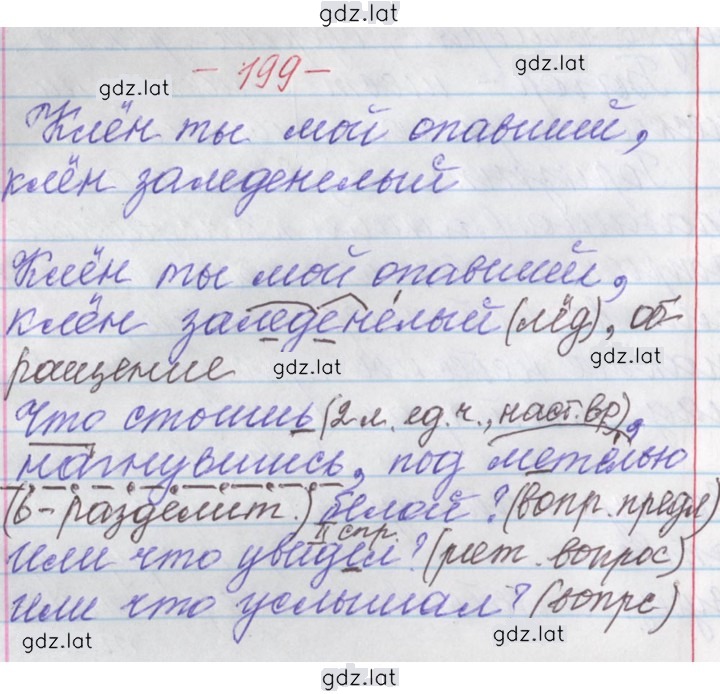 gdz.lat
- 199 -
gdz.lat
gdz.lat
Клён ты мой опавший,
клён заледенелый
Клён ты мой опавший,
клён заледенелый (лёд), об-
gdz.lat
gdz.lat
ращение
Что стоишь (2 л. ед. ч., наст. вр),
нагнувшись, под метелью
(ь - разделит.) белой? (вопр. предл)
II спр.
или что увидел? (рит. вопрос)
или что услышал? (вопрс)
gdz.lat
gdz.lat
gdz.lat